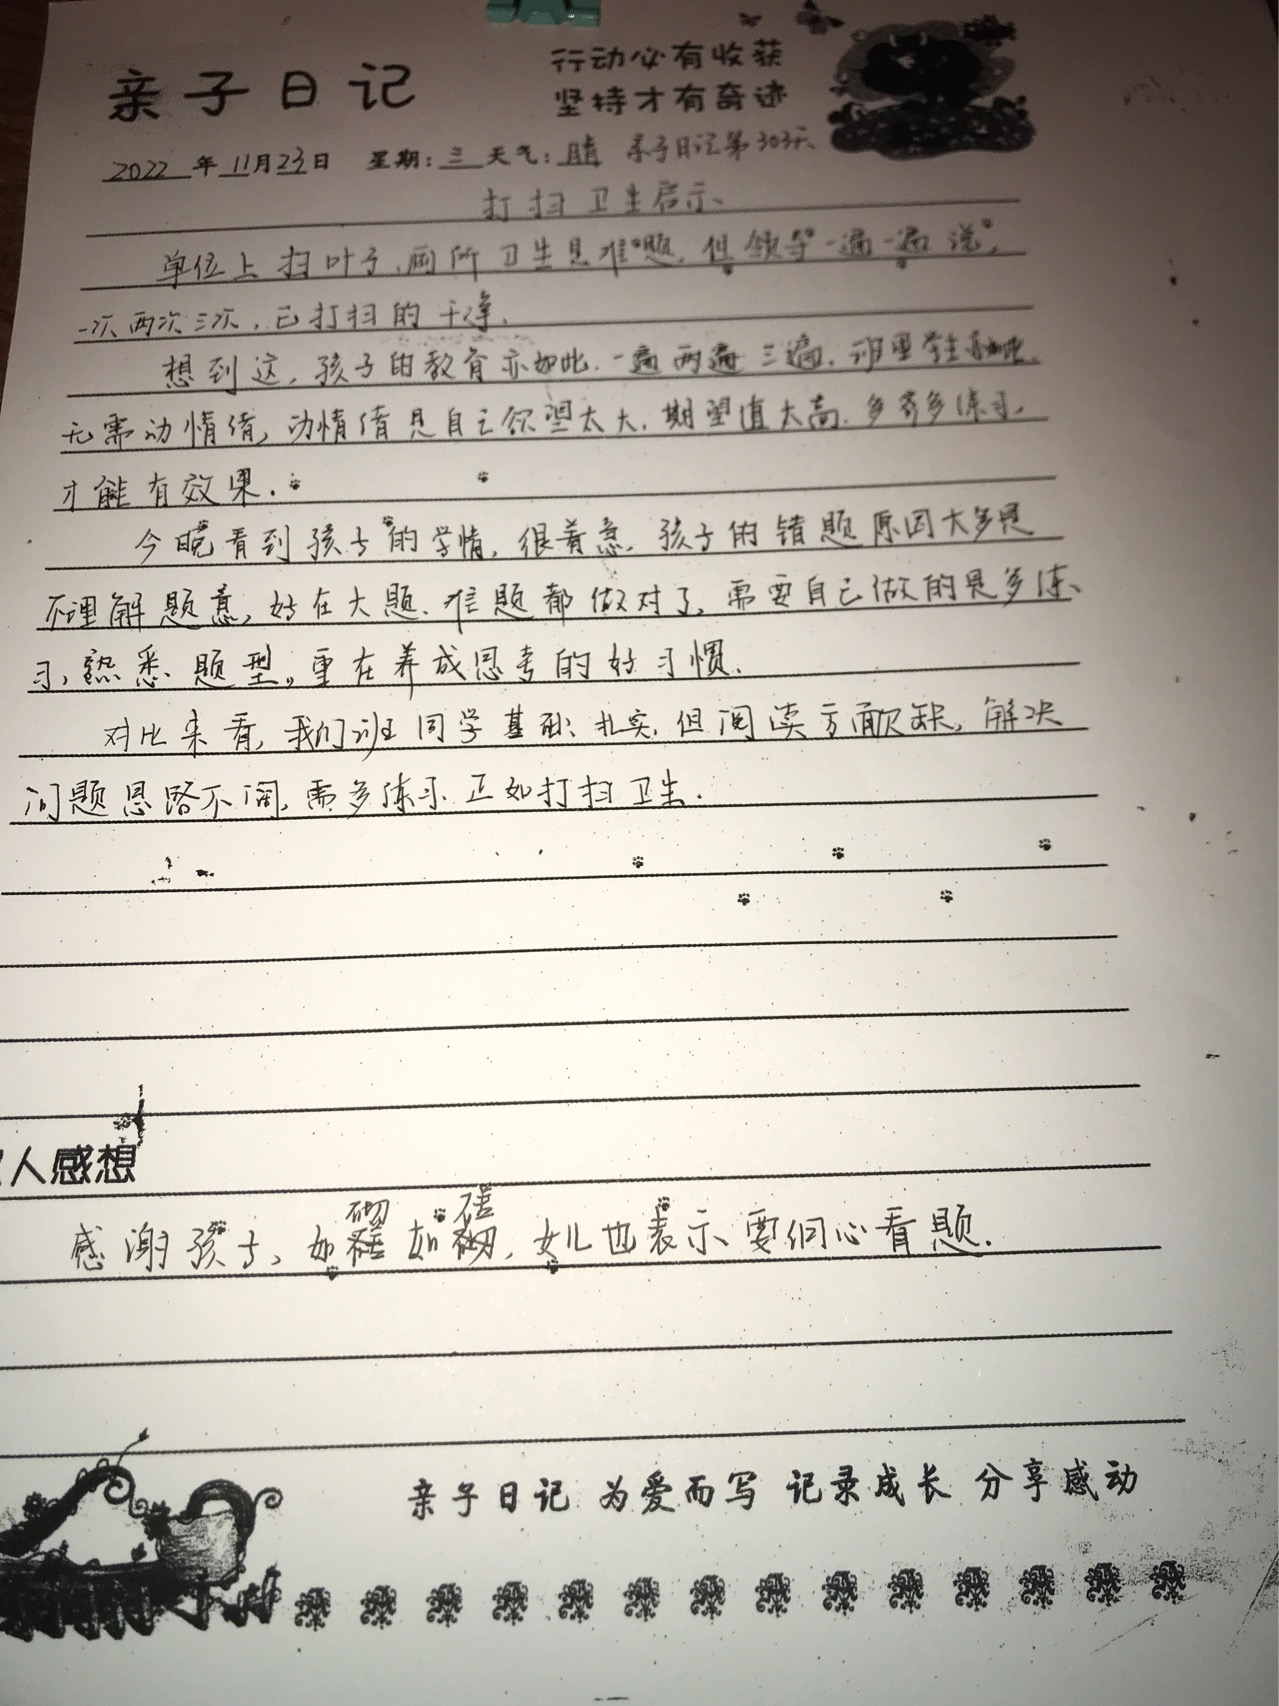 亲子日记
行动必有收获
坚持才有奇迹
2022年11月23日 星期:三 天气:晴 亲子日记第303天
打扫卫生启示、
单位上扫叶子、厕所卫生是难题,但领导一遍一遍说,
一次两次三次,已打扫的干净.
想到这,孩子的教育亦如此.一遍两遍三遍.班里学生亦如此.
无需动情绪,动情绪是自己欲望太大.期望值太高.多寄多练习.
才能有效果.
今晚看到孩子的学情,很着急.孩子的错题原因大多是
不理解题意,好在大题、难题都做对了,需要自己做的是多练、
习,熟悉题型,重在养成思考的好习惯.
对比来看,我们班同学基础扎实,但阅读方面欠缺,解决
问题思路不阔,需多练习.正如打扫卫生.
人感想
感谢孩子,如切如磋,女儿也表示要细心看题.
亲子日记 为爱而写 记录成长 分享感动